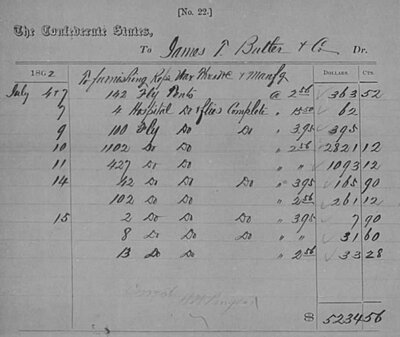 [No. 22.]
The Confederate States,
To James T Butler & Co Dr.
1862 To furnishing Rope War Down & Manfg DOLLARS. CTS.
July 4&7 142 Fly Tents @ 2 56 363 52
7 4 Hospital Do & flies Complete " 15 50 62
9 100 Fly Do Do " 3 95 395
10 1102 Do Do " 2 56 2821 12
11 427 Do Do " " 1093 12
14 42 Do Do Do " 3 95 165 90
102 Do Do " 2 56 261 12
15 2 Do Do Do " 3 95 7 90
8 Do Do Do " " 31 60
13 Do Do " 2 56 33 28
Correct
$ 5234 56